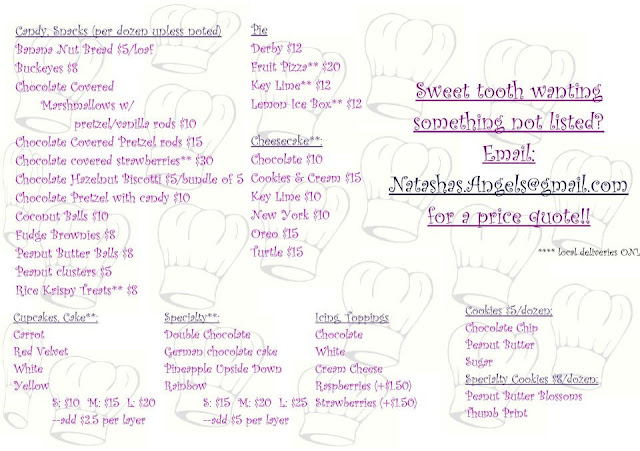 Candy, Snacks (per dozen unless noted)
Banana Nut Bread $5/loaf
Buckeyes $8
Chocolate Covered
Marshmallows w/
pretzel/vanilla rods $10
Chocolate Covered Pretzel rods $15
Chocolate covered strawberries** $30
Chocolate Hazelnut Biscotti $5/bundle of 5
Chocolate Pretzel with candy $10
Coconut Balls $10
Fudge Brownies $8
Peanut Butter Balls $8
Peanut clusters $5
Rice Krispy Treats** $8
Pie
Derby $12
Fruit Pizza** $20
Key Lime** $12
Lemon Ice Box** $12
Cheesecake**:
Chocolate $10
Cookies & Cream $15
Key Lime $10
New York $10
Oreo $15
Turtle $15
Sweet tooth wanting
something not listed?
Email:
Natashas.Angels@gmail.com
for a price quote!!
**** local deliveries ONL
Cupcakes, Cake**:
Carrot
Red Velvet
White
Yellow
S: $10 M: $15 L: $20
--add $2.5 per layer
Specialty**:
Double Chocolate
German chocolate cake
Pineapple Upside Down
Rainbow
S: $15 M: $20 L: $25
--add $5 per layer
Icing, Toppings
Chocolate
White
Cream Cheese
Raspberries (+$1.50)
Strawberries (+$1.50)
Cookies $5/dozen:
Chocolate Chip
Peanut Butter
Sugar
Specialty Cookies $8/dozen:
Peanut Butter Blossoms
Thumb Print